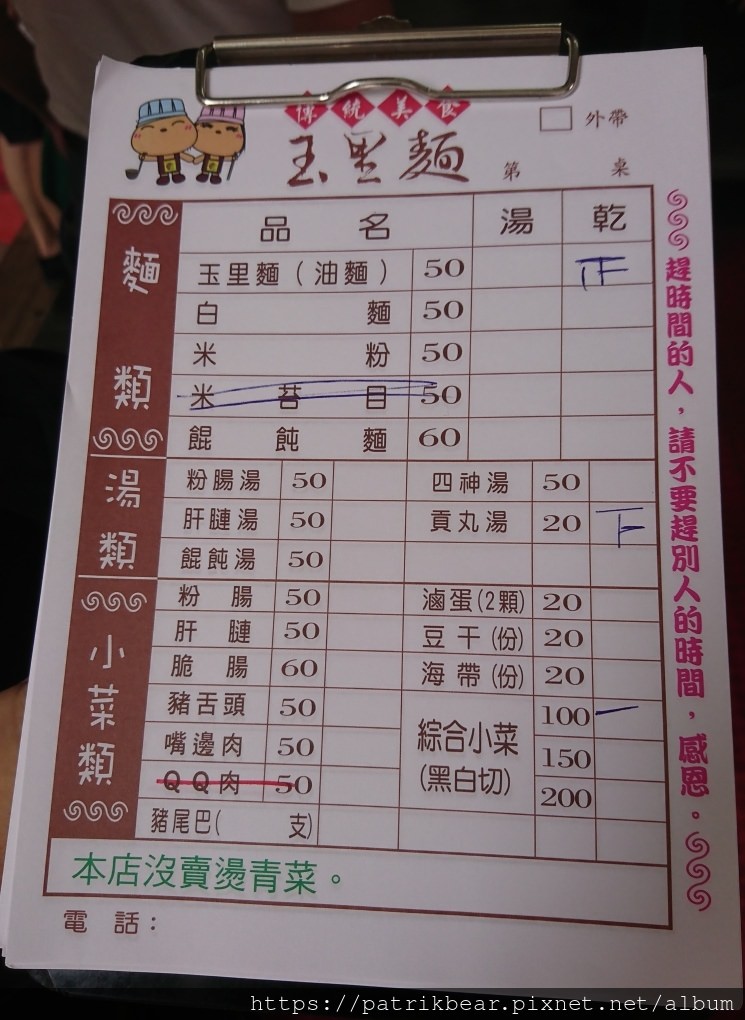 傳統美食
玉里麵
外帶
第 桌
品 名 湯 乾
麵類
玉里麵（油麵） 50 正
白麵 50
米粉 50
米苔目 50
餛飩麵 60
湯類
粉腸湯 50 四神湯 50
肝腱湯 50 貢丸湯 20 下
餛飩湯 50
小菜類
粉腸 50 滷蛋(2顆) 20
肝腱 50 豆干(份) 20
脆腸 60 海帶(份) 20
豬舌頭 50 綜合小菜(黑白切) 100 一
嘴邊肉 50 150
QQ肉 50 200
豬尾巴( 支)
本店沒賣燙青菜。
電話：
趕時間的人，請不要趕別人的時間，感恩。
https://patrikbear.pixnet.net/album